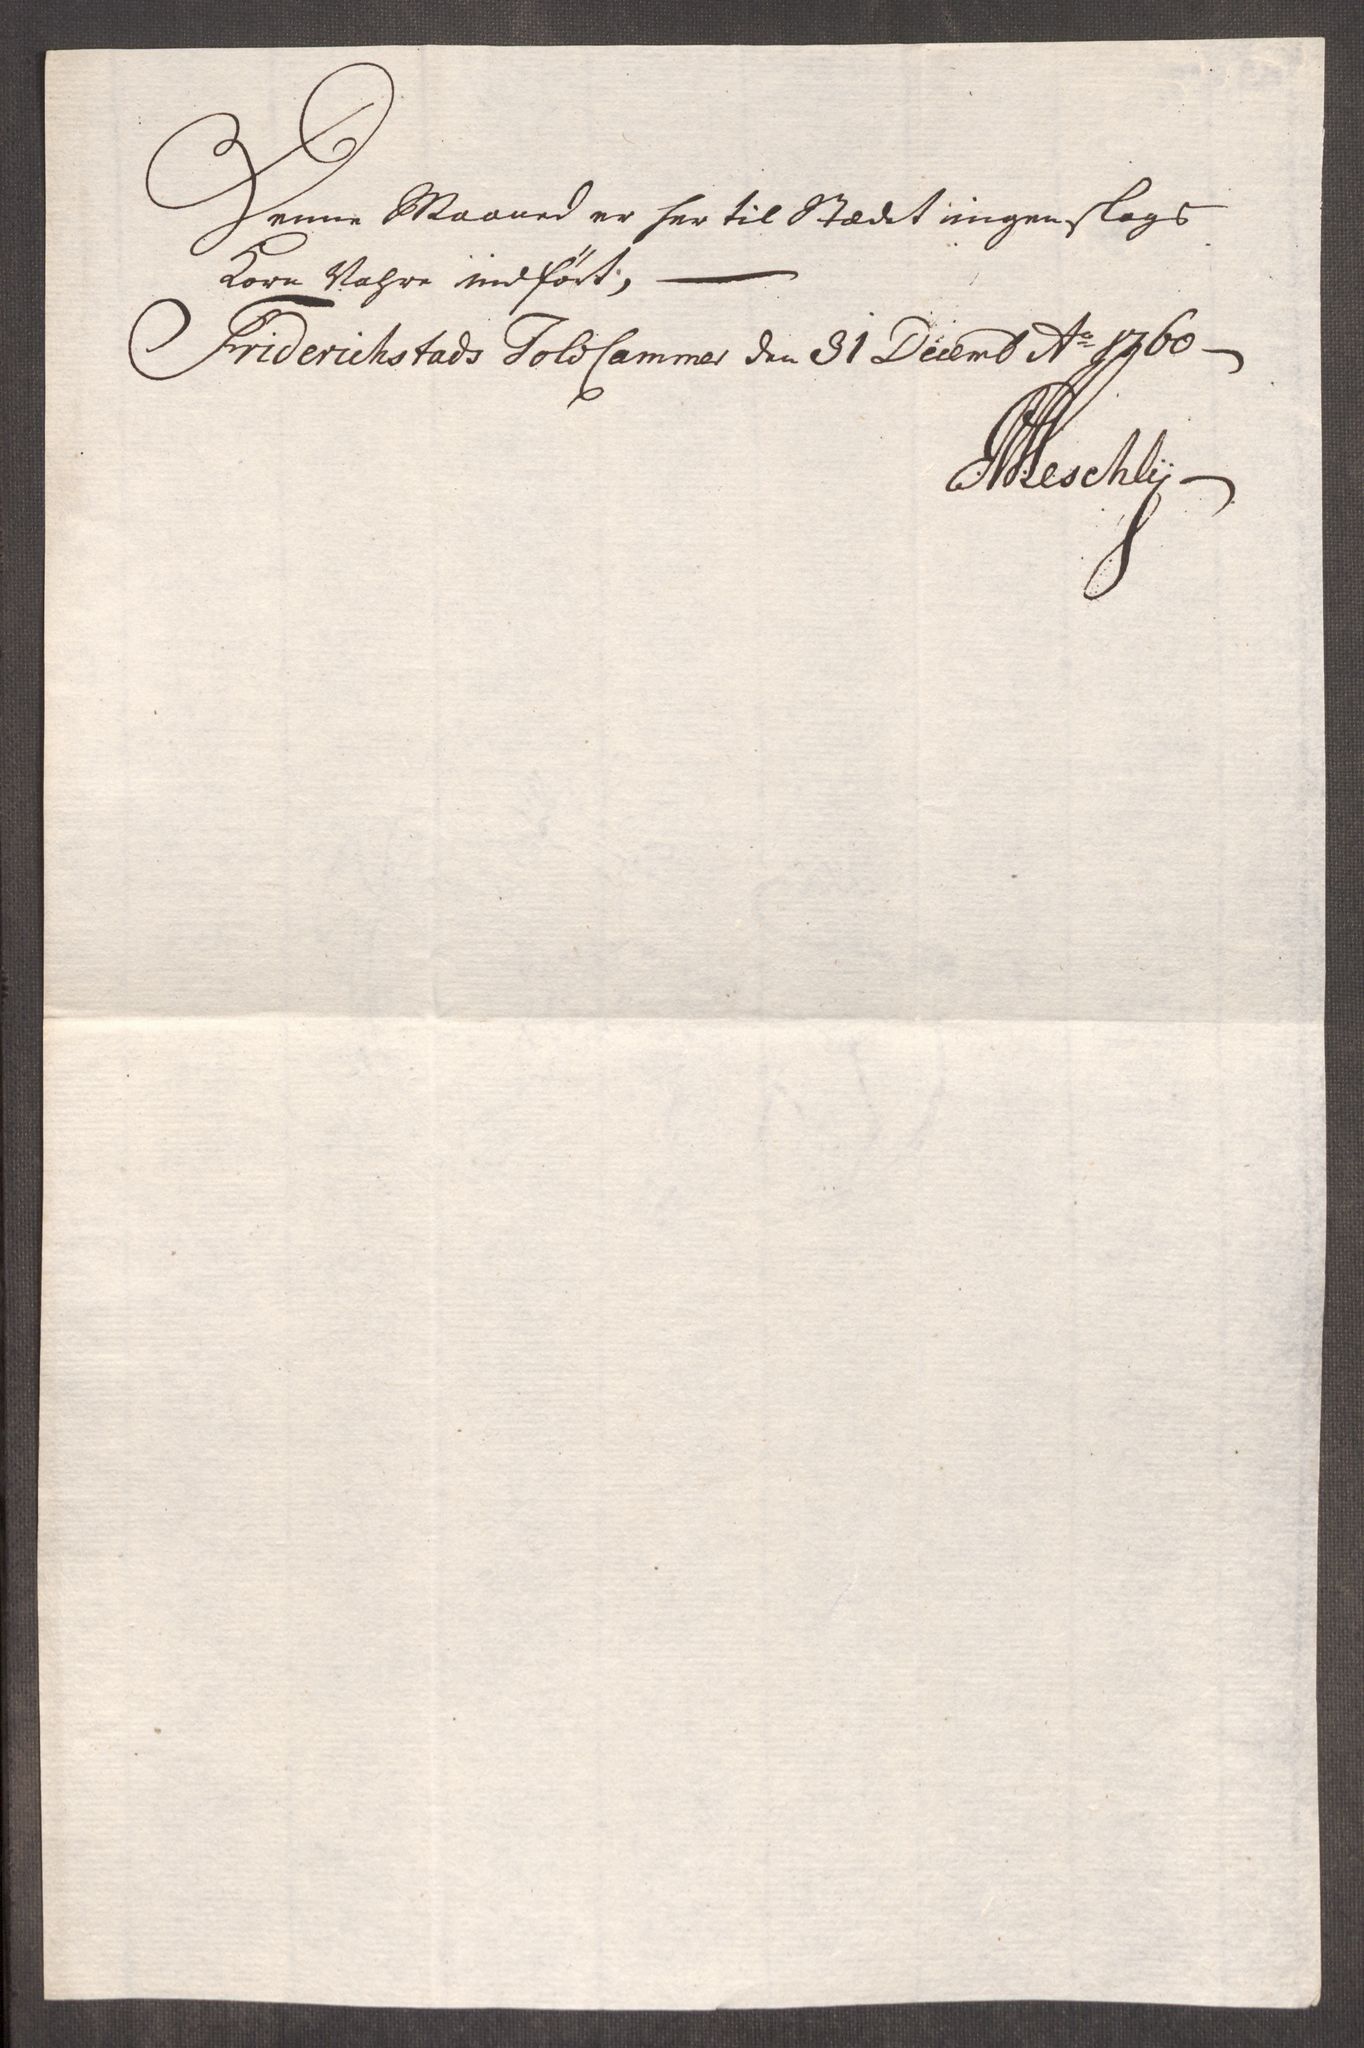 Denne Maaned er her til Stædet ingen slags
Korn Vahre indført,
Friderichstads Told Cammer den 31 Decemb Ao 1760